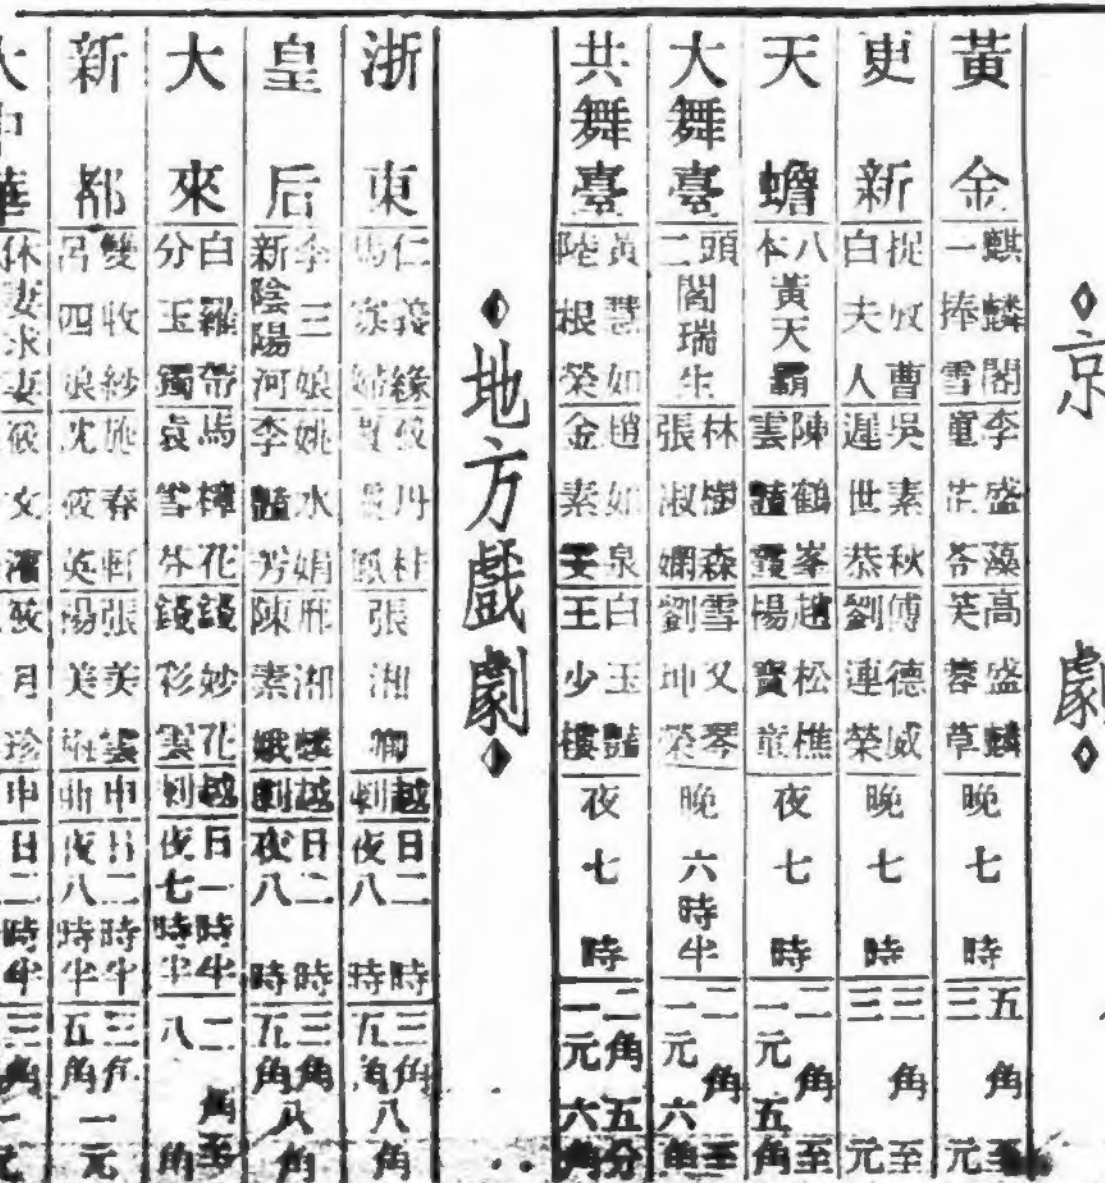 京劇
黃金
麒麟閣
一捧雪
李盛藻
童芷苓
高盛麟
芙蓉草
晚七時
五角至
三元
更新
捉放曹
白夫人
吳素秋
遲世恭
傅德威
劉連榮
晚七時
三角至
三元
天蟾
八本黃天霸
陳鶴峯
雲豔霞
趙松樵
楊寶童
夜七時
二角至
一元五角
大舞臺
頭二閻瑞生
林樹森
張淑嫻
雪又琴
劉坤榮
晚六時半
二角至
一元六角
共舞臺
黃慧如
陸根榮
趙如泉
金素雯
白玉豔
王少樓
夜七時
二角五分
一元六角
地方戲劇
浙東
仁義緣
馬寡婦
筱丹桂
張湘卿
越劇
日二時
夜八時
三角
五角八角
皇后
李三娘
新陰陽河
姚水娟
李豔芳
邢湘麟
陳素娥
越劇
日二時
夜八時
三角
五角八角
大來
白羅帶
分玉鐲
馬樟花
袁雪芬
錢妙花
錢彩雲
越劇
日一時半
夜七時半
二角至
八角
新都
雙收紗
呂四娘
施春軒
沈筱英
張美雲
楊美梅
申曲
日二時半
夜八時半
三角
五角一元
大中華
休妻求妻
筱文濱
筱月珍
申
日二時半
三角一元